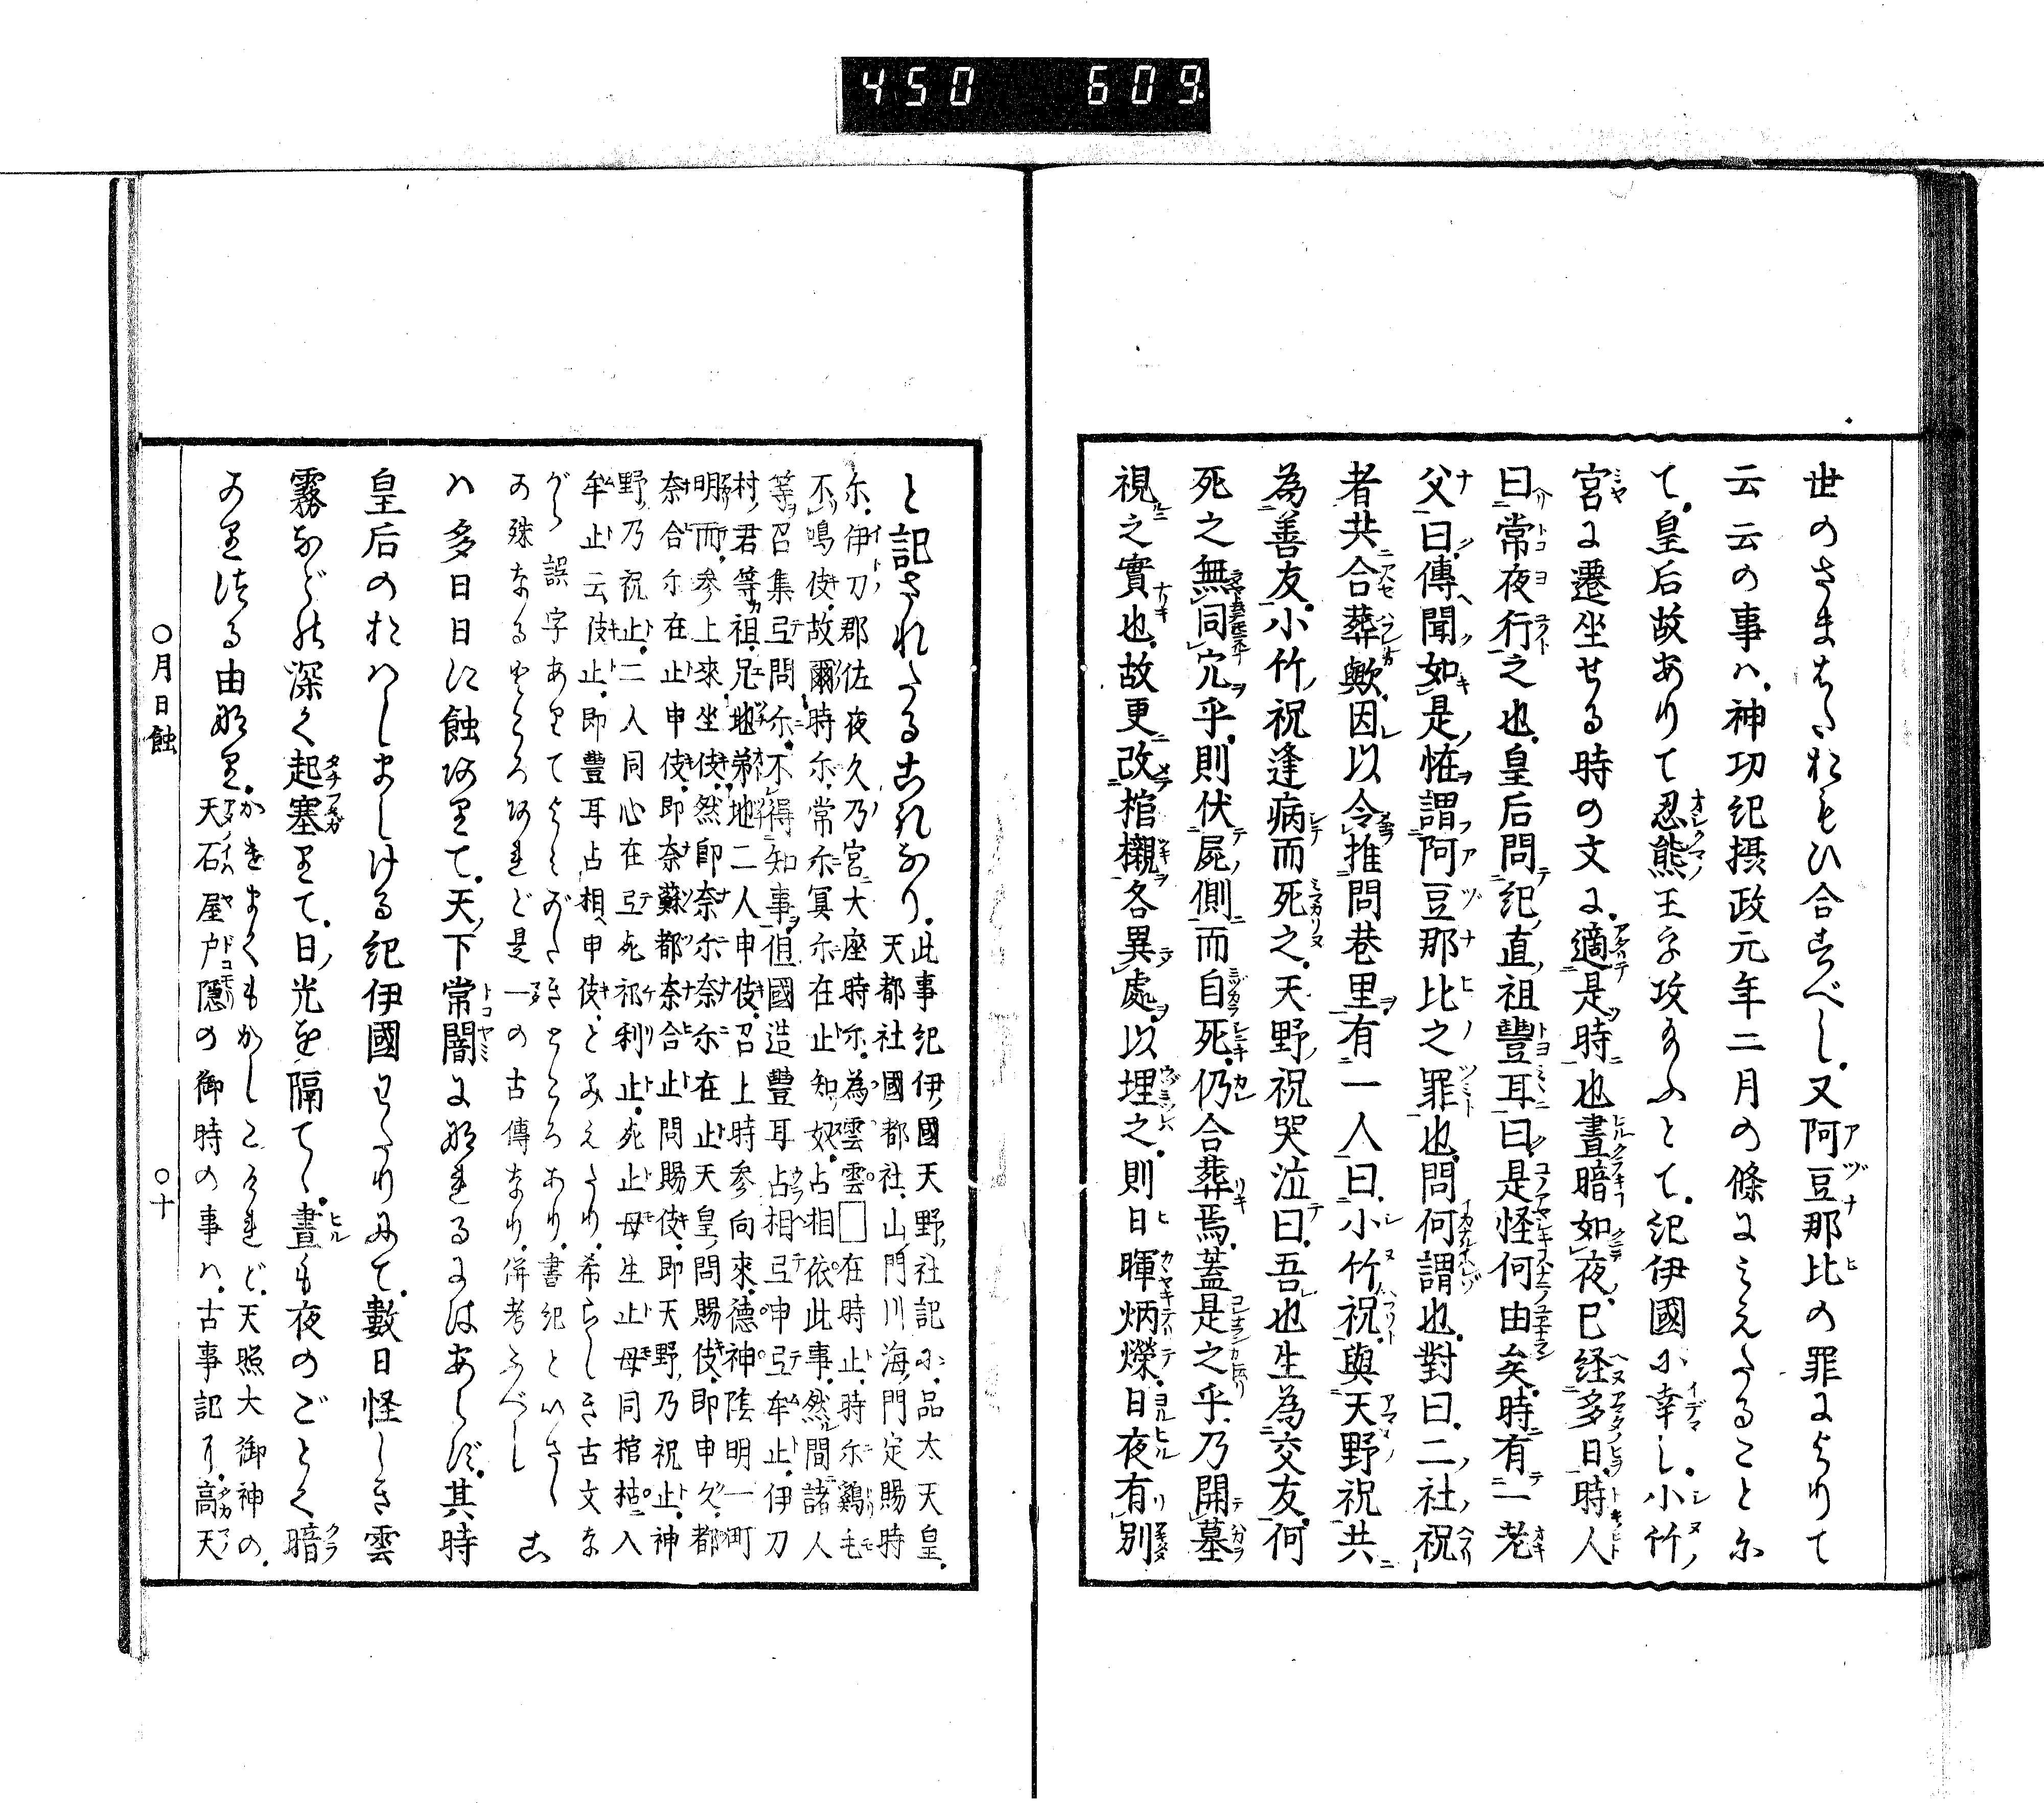 450 609
世のさまをもおもひ合すべし。又阿豆那比の罪によりて
云云の事ハ、神功紀摂政元年二月の條にみえたること尓
て。皇后故ありて忍熊王を攻たまふとて。紀伊國尓幸し。小竹
宮に遷坐せる時の文に。適是時也晝暗如夜。已経多日。時人
曰常夜行之也。皇后問紀直祖豐耳曰是怪何由矣。時有一老
父曰。傳聞如是恠謂阿豆那比之罪也。問何謂也。對曰。二社祝
者共合葬歟。因以令推問巷里有一人曰。小竹祝與天野祝共
為善友。小竹祝逢病而死之。天野祝哭泣曰。吾也生為交友。何
死之無同穴乎。則伏屍側而自死。仍合葬焉。蓋是之乎。乃開墓
視之實也。故更改棺櫬各異處以埋之。則日暉炳爃。日夜有別
と記されたるこれなり。此事紀伊國天野社記尓。品太天皇。
天都社國都社、山門川海門定賜時
尓、伊刀郡佐夜久乃宮大座時尓。為雲雲□在時止、時尓鷄毛
不鳴伎。故爾時尓、常尓冥尓在止知奴。占相依此事。然間諸人
等召集弖問尓。不得知事。但國造豐耳占相弖申弖牟止。伊刀
村君等祖。兄地弟地二人申伎。召上時参向來。德神陰明一町
明而。参上來坐伎。然即奈尓奈尓在止天皇問賜伎。即申久。都
奈合尓在止申伎。即奈蘇都奈合止問賜伎。即天野乃祝止。神
野乃祝止。二人同心在弖死祁利止。死止母生止母同棺枯入
牟止云伎止。即豐耳占相申伎。とみえたり。希らしき古文な
がら誤字ありてよみがたきところあり。書紀といさゝ
の殊なるところあれど是一の古傳なり。併考ふべし こ
ハ多日日に蝕ありて。天下常闇になれるにはあらず。其時
皇后のおはしましける紀伊國わたりにて。數日怪しき雲
霧などの深く起塞りて。日光を隔てゝ。晝も夜のごとく暗
かりける由なり。かけまくもかしこけれど。天照大御神の。
天石屋戸隱の御時の事ハ。古事記に。高天
○月日蝕 ○十